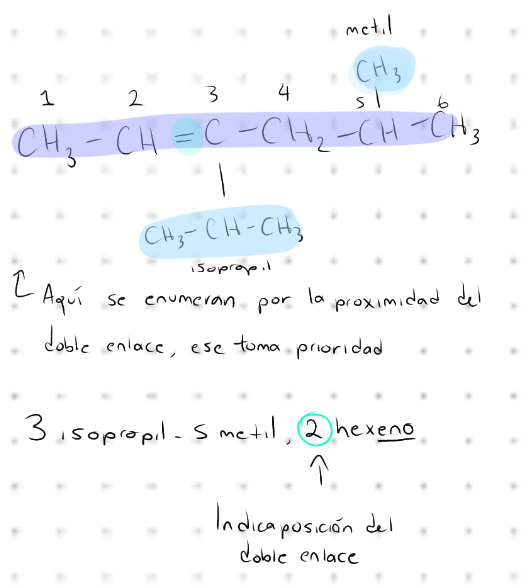 metil
CH3
1 2 3 4 5 6
CH3 - CH = C - CH2 - CH - CH3
CH3 - CH - CH3
isopropil
Aquí se enumeran por la proximidad del
doble enlace, ese toma prioridad
3 isopropil - 5 metil, 2 hexeno
Indica posición del
doble enlace